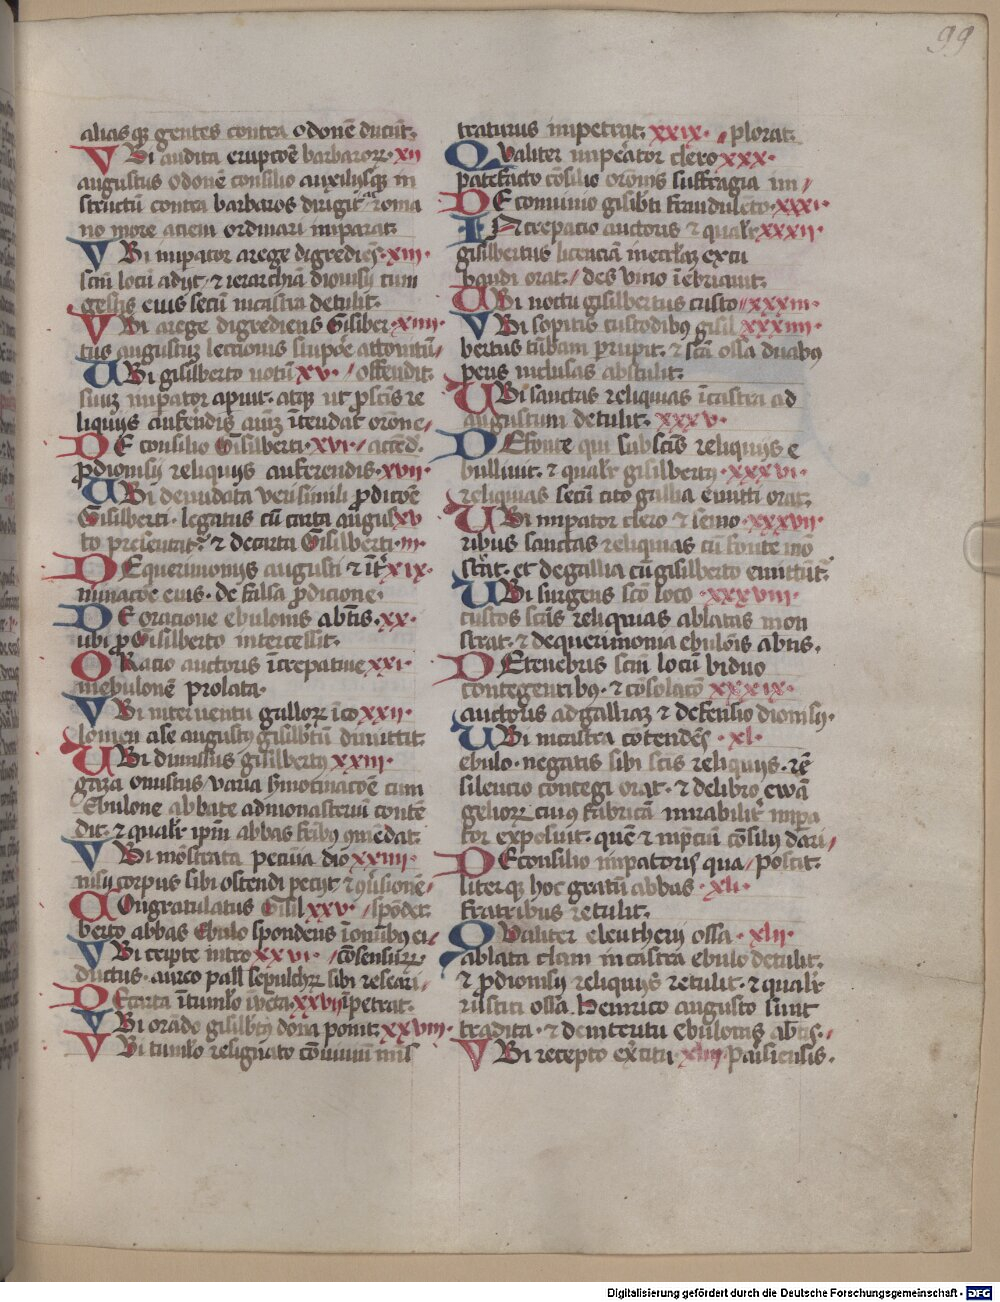 99
aliasq; gentes contra odonē ducūt.
VBi audita erupcōe barbaror̄ · xij
augustus odonē consilio auxilijsq; in
structū contra barbaros dirigit roma
no more aciem ordinari imparat.
VBi imparator a rege digrediēs · xiij ·
scm̄ locū adijt · & ierarchiā dionisij cum
gestis eius secū in castra detulit.
VBi a rege digrediens Gisiber · xiiij ·
tus augustus lectionis stupōe attonitū /
UBi gisilberto notū · xv · / offendit.
suuz imparator aperuit. atq; ut p scīs re
liquijs auferendis aīuz ītendat orōne /
DE consilio Gisilberti · xvi · / accēd.
p dionisij reliquijs auferendis · xvij ·
UBi denudata verisimili pdicōe
Gisilberti · legatus cū carta augus xv
to presentat̄ · & de carta Gisilberti · iij ·
DE querimonijs augusti & īt̄ xix ·
minacōe eius · de falsa pdicione ·
DE oracione ebulonis abt̄is · xx ·
ubi p Gisilberto intercessit.
ORatio auctoris īcrepatiue xxi ·
in ebulonē prolata ·
VBi interuentu gallor̄ īco xxij ·
lomen a se augustꝯ gisilbtū dimittit.
UBi dimissus gisilbertꝯ xxiij ·
gaza onustus / varia hmoticacōe cum
Ebulone abbate ad monasteriū contē
dit · & qualr̄ ipm̄ abbas frībꝯ ꝯmēdat.
VBi mōstrata pecuīa dio xxiiij ·
nisij corpus sibi ostendi pecijt · & ꝯfusionē /
COngratulatus Gisil xxv · / spōdet.
berto abbas Ebulo spondens ī omībꝯ ei /
VBi cripte intro xxvi · / cōsensurr̄
ductus · aureo pall sepulchrꝫ sibi reserari /
DE carta ī tumło īuēta xxvij īpetrat.
VBi orādo gisilbtꝯ dōna ponit xxviij ·
VBi tumło resignato cōuiuiū mis
traturus impetrat. xxix · / plorat.
QUaliter impator clero xxx ·
patefacto cōsilio orōnis suffragia im /
DE conuiuio gisilbti fraudulēto · xxxi ·
INcrepacio auctoris & qualr̄ xxxij ·
gisilbertus licenciā in ecclīaz excu
bandi orat. / des vino īebriauit.
UBi noctu gisilbertus custo // xxxiij ·
VBi sopitis custodibꝯ gisil xxxiiij ·
bertus tūbam prupit. & scā ossa duabꝯ
peris inclusas abstulit.
UBi sanctas reliquias ī castra ad
augustum detulit. xxxv ·
DE fonte qui sub scīs reliquijs e
bulliuit. & qualr̄ gisilbertꝯ · xxxvi ·
reliquias secū cito gallia emitti orat.
UBi imparator clero & semo · xxxvij ·
ribus sanctas reliquias cū fonte mō
strat. et de gallia cū gisilberto emittūt.
UBi surgens sco loco · xxxviij ·
custos scīs reliquias ablatas mon
strat. & de querimonia ebulōis abtis.
DE tenebris scm̄ locū biduo
contegentibꝯ · & cōsolacōe xxxix ·
auctoris ad galliaz & defensio dionisij ·
UBi in castra cōtendēs · xl ·
ebulo · negatis sibi scīs reliquijs · rē
silencio contegi orat · & de libro ewā
geliorꝫ cuius fabricā mirabilit̄ impa
tor exposuit · quē & in p̄ciū cōsilij dari /
DE consilio imparatoris qua / poscit.
literq; hoc gratū abbas · xli ·
fratribus retulit.
QUaliter eleutherij ossa · xlij ·
ablata clam in castra ebulo detulit.
& p dionisij reliquijs retulit · & qualr̄
rustici ossa Henrico augusto sunt
tradita · & de interitu ebulonis abtis · /
VBi recepto exc̄itu · xliij · Parisiensis ·
Digitalisierung gefördert durch die Deutsche Forschungsgemeinschaft - DFG